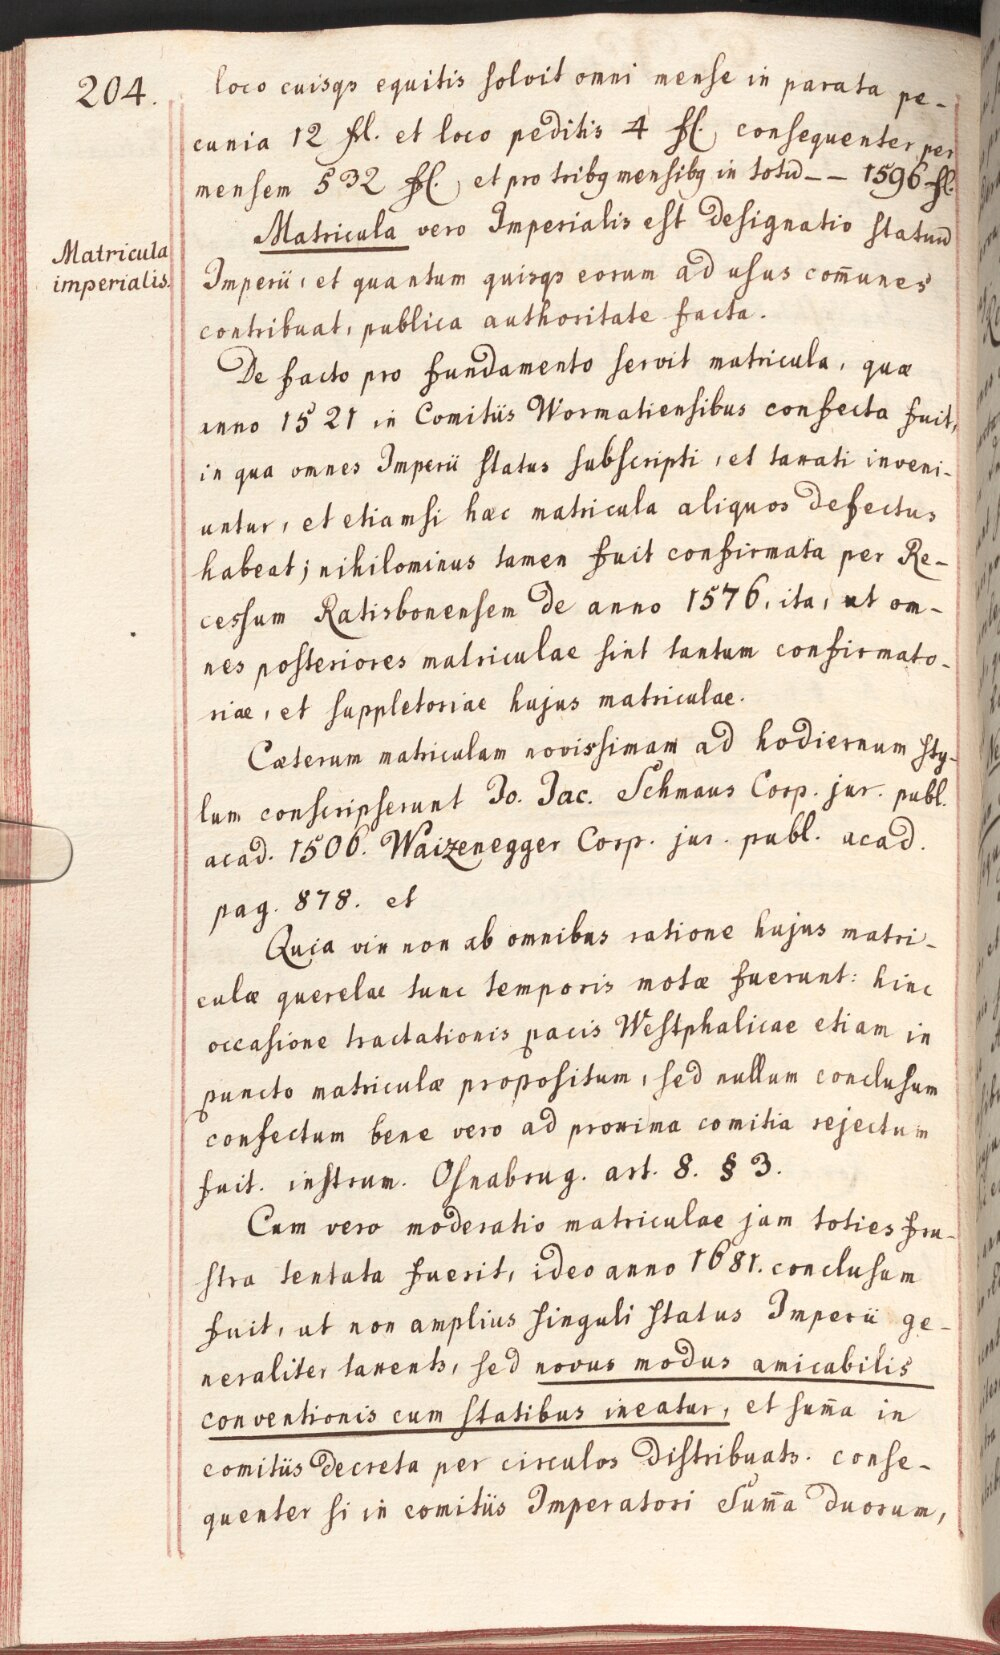 204.
loco cuisqs equitis solvit omni mense in parata pe-
cunia 12 fl. et loco peditis 4 fl., consequenter per
mensem 532 fl., et pro tribq mensibq in totū -- 1596 fl.
Matricula
imperialis.
Matricula vero Imperialis est designatio statuū
Imperii, et quantum quisqs eorum ad usus com̄unes
contribuat, publica authoritate facta.
De facto pro fundamento servit matricula, quæ
anno 1521 in Comitiis Wormatiensibus confecta fuit,
in qua omnes Imperii status subscripti, et taxati inveni-
untur, et etiamsi hæc matricula aliquos defectus
habeat; nihilominus tamen fuit confirmata per Re-
cessum Ratisbonensem de anno 1576, ita, ut om-
nes posteriores matriculae sint tantum confirmato-
riae, et suppletoriae hujus matriculae.
Cæterum matriculam novissimam ad hodiernum sty-
lum conscripserunt Jo. Jac. Schmaus Corp. jur. publ.
acad. 1506. Waizenegger Corp. jur. publ. acad.
pag. 878. et
Quia vix non ab omnibus ratione hujus matri-
culæ querelae tunc temporis motæ fuerunt: hinc
occasione tractationis pacis Westphalicae etiam in
puncto matriculæ propositum, sed nullum conclusum
confectum bene vero ad proxima comitia rejectum
fuit. instrum. Osnabrug. art. 8. § 3.
Cum vero moderatio matriculae jam toties fru-
stra tentata fuerit, ideo anno 1681. conclusum
fuit, ut non amplius singuli status Imperii ge-
neraliter taxents, sed novus modus amicabilis
conventionis cum statibus ineatur, et sum̄a in
comitiis decreta per circulos distribuats. conse-
quenter si in comitiis Imperatori Sum̄a duorum,